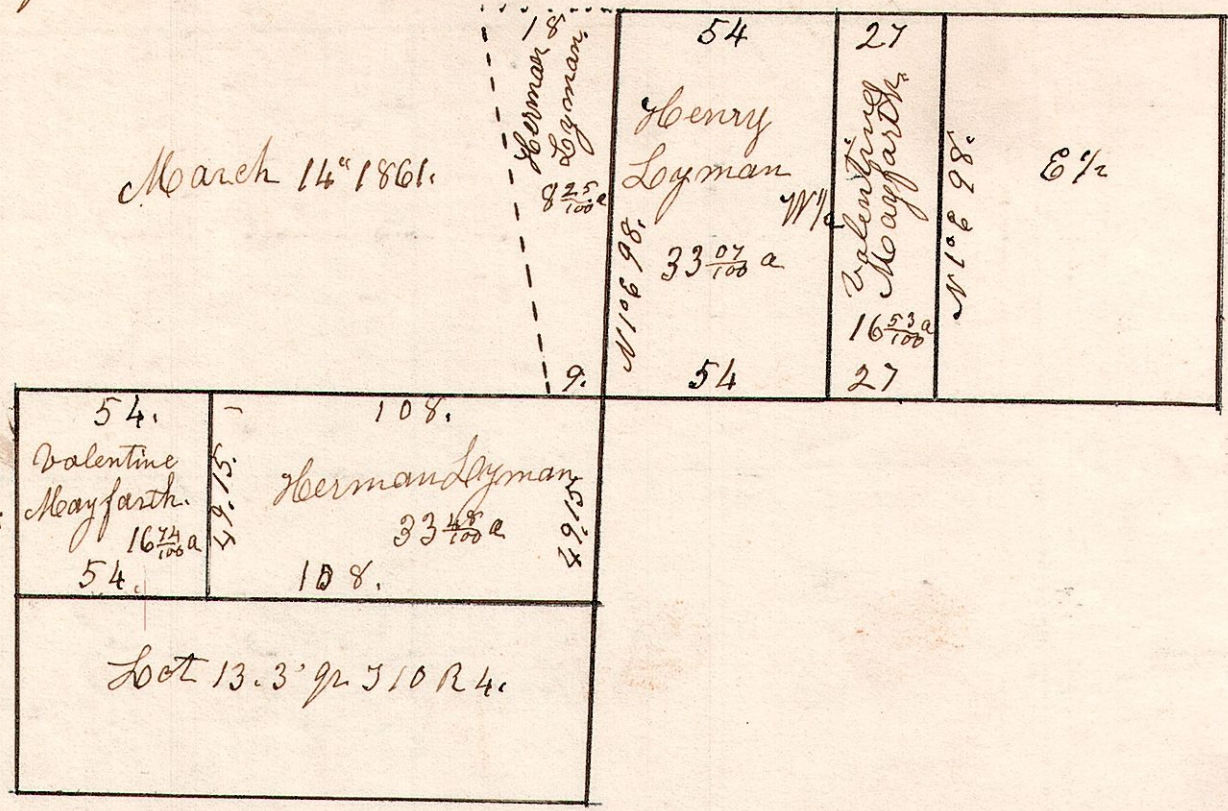 March 14" 1861.
18
Herman
Lyman
8 25/100 a
9.
54
Henry
Lyman
W 1/2
33 07/100 a
N 1° E 98.
54
27
Valentine
Mayfarth
16 53/100 a
27
N 1° E 98.
E 1/2
54.
Valentine
Mayfarth.
16 74/100 a
54.
49.15.
108.
Herman Lyman
33 48/100 a
108.
49.15
Lot 13. 3' qr T 10 R 4.